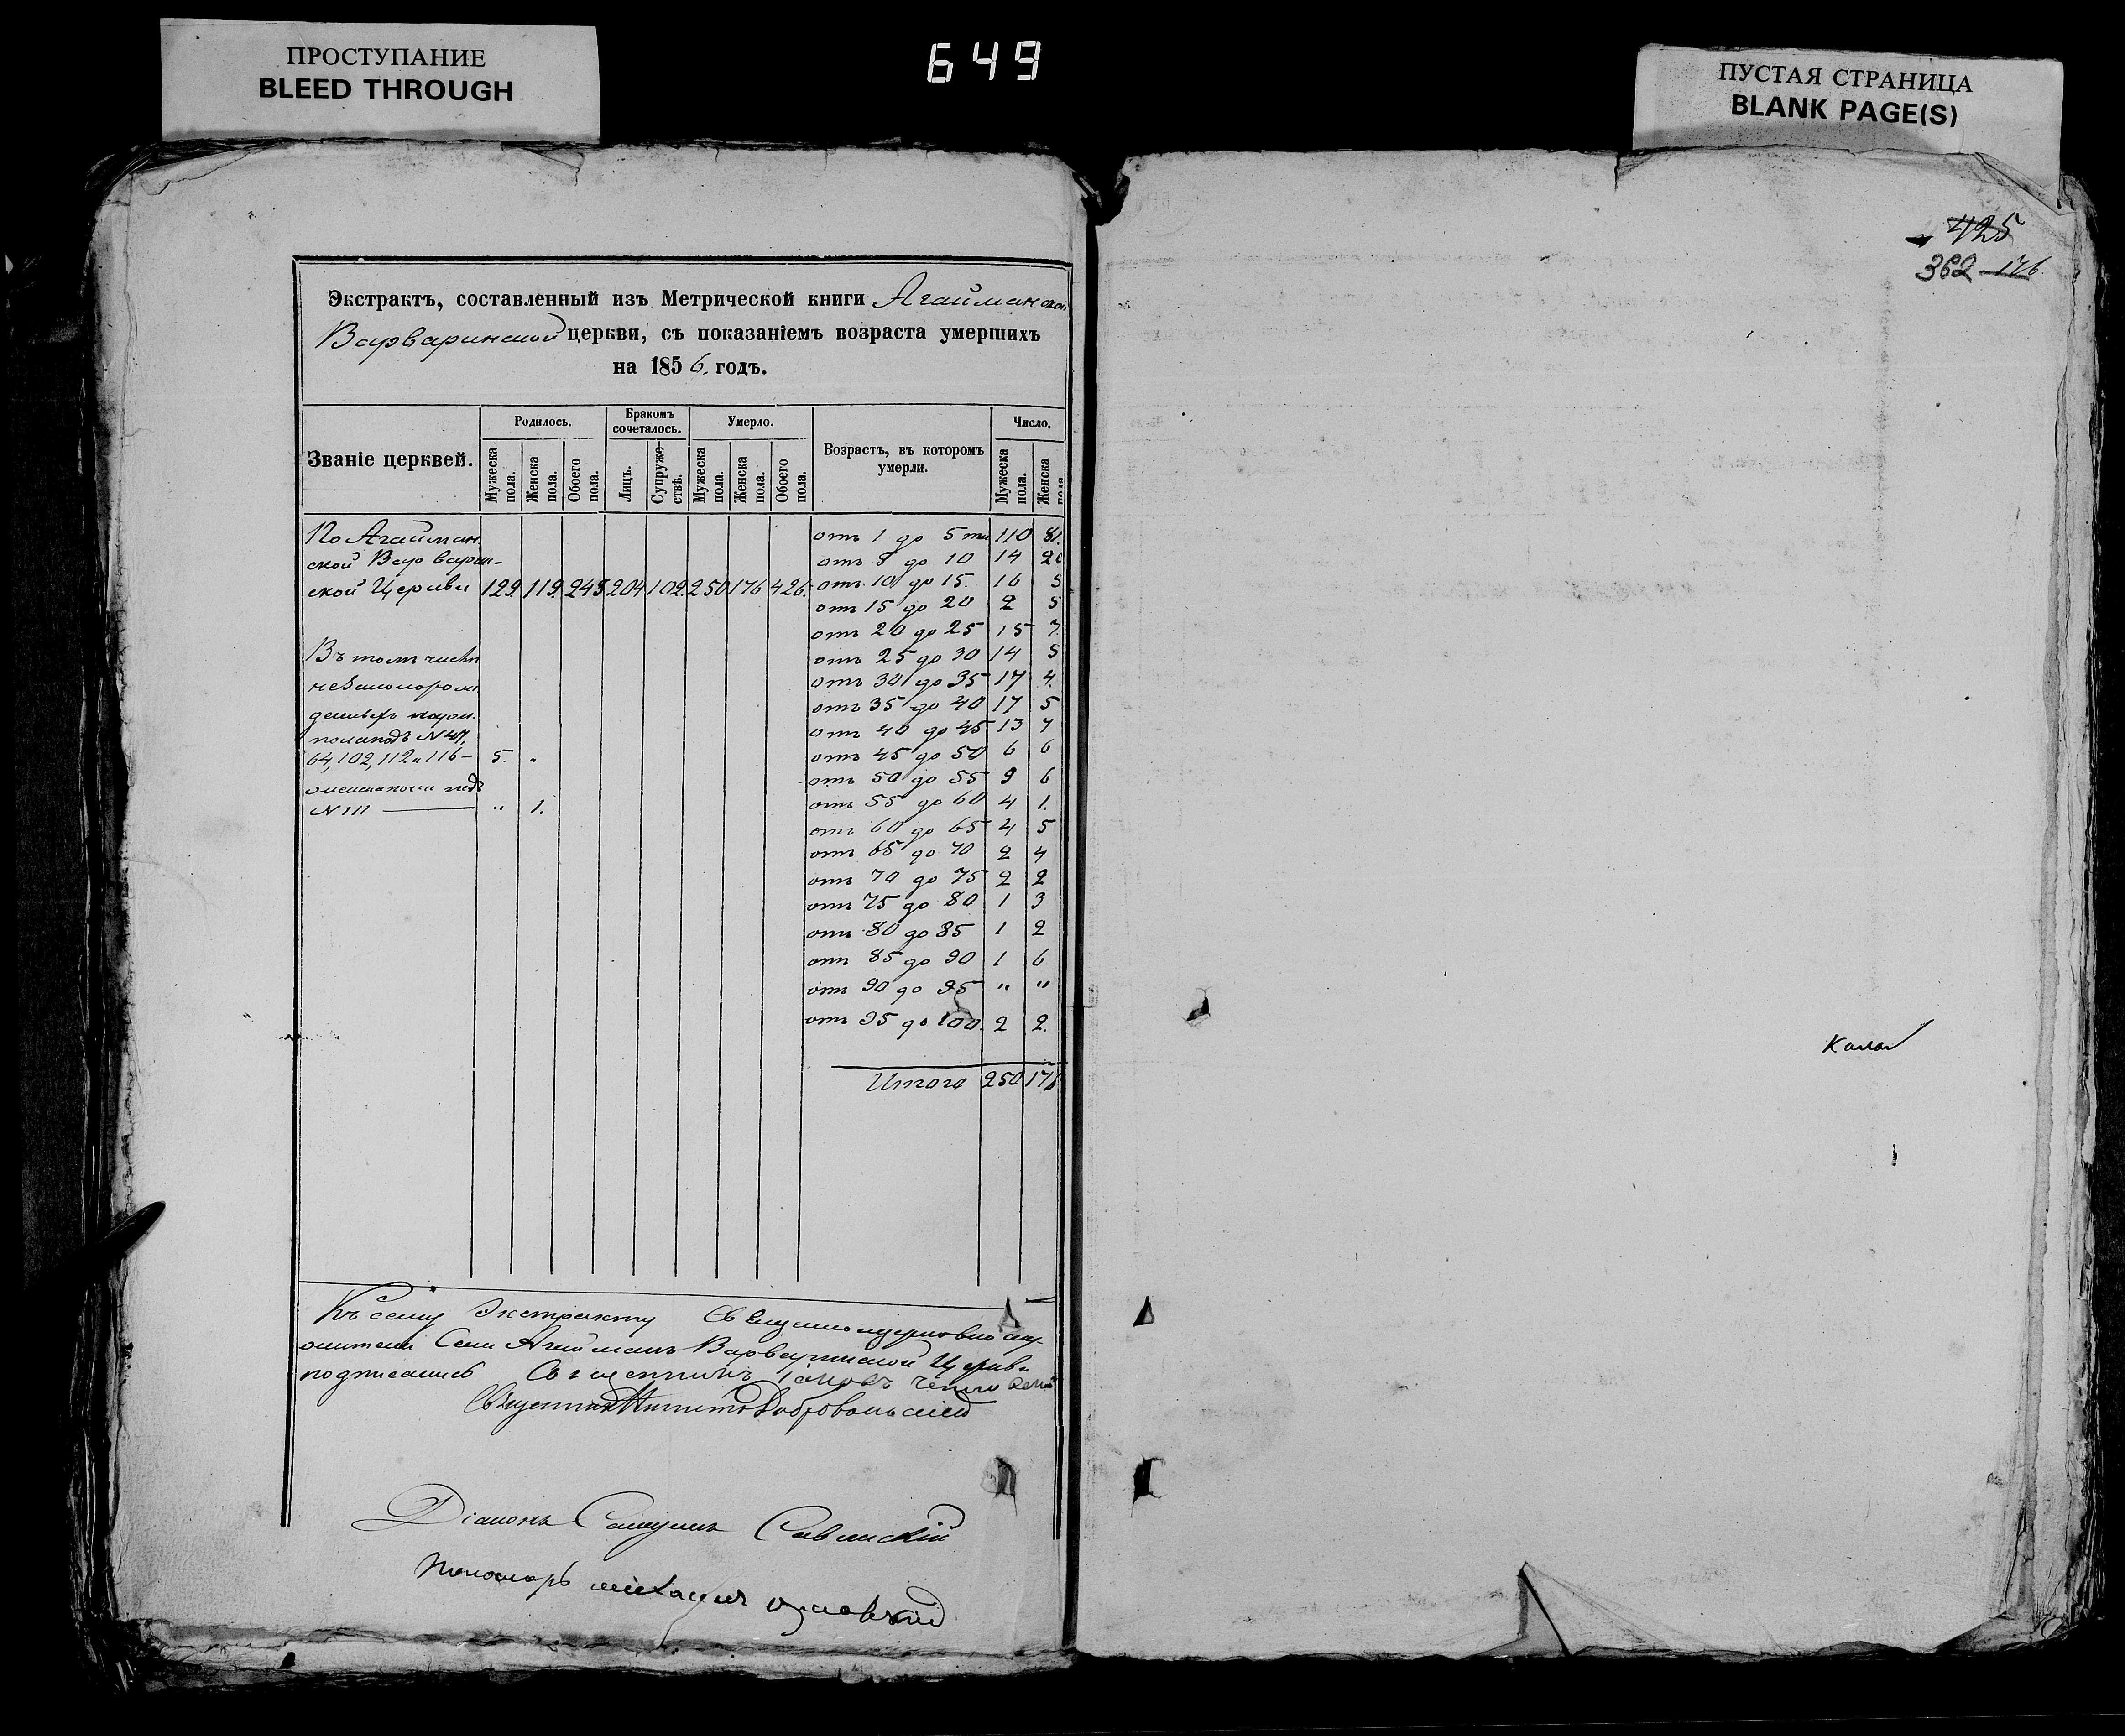 ПРОСТУПАНИЕ
BLEED THROUGH
649
ПУСТАЯ СТРАНИЦА
BLANK PAGE(S)
425
362 - 176
Экстрактъ, составленный изъ Метрической книги Агайманской
Варваринской церкви, съ показаніемъ возраста умершихъ
на 1856. годъ.
Званіе церквей.
Родилось.
Бракомъ сочеталось.
Умерло.
Возрастъ, въ которомъ умерли.
Число.
Мужеска пола.
Женска пола.
Обоего пола.
Лицъ.
Супруже-ствъ.
Мужеска пола.
Женска пола.
Обоего пола.
Мужеска пола.
Женска пола
По Агайман- отъ 1 до 5ти 110 81.
ской Варварин- отъ 5 до 10 14 20
ской Церкви 129. 119. 248 204 102. 250 176 426. отъ 10 до 15. 16 5
отъ 15 до 20 2 5
отъ 20 до 25 15 7.
Въ томъ числѣ отъ 25 до 30 14 5
незаконорож отъ 30 до 35 17 4.
денныхъ отъ 35 до 40 17 5
пола подъ N 47, отъ 40 до 45 13 7
64, 102, 112 и 116 - 5. " отъ 45 до 50 6 6
женска пола подъ отъ 50 до 55 9 6
N 111 " 1. отъ 55 до 60 4 1.
отъ 60 до 65 4 5
отъ 65 до 70 2 4
отъ 70 до 75 2 2
отъ 75 до 80 1 3
отъ 80 до 85 1 2
отъ 85 до 90 1 6
отъ 90 до 95 " "
отъ 95 до 100. 2 2.
Итого 250 176
Къ сему Экстракту Священноцерковнослу-
жители Села Агайманъ Варваринской Церкви
подписались Священникъ Іаковъ
Священникъ Никита Добровольскій
Діаконъ Самуилъ Савинскій
Пономарь Михаилъ